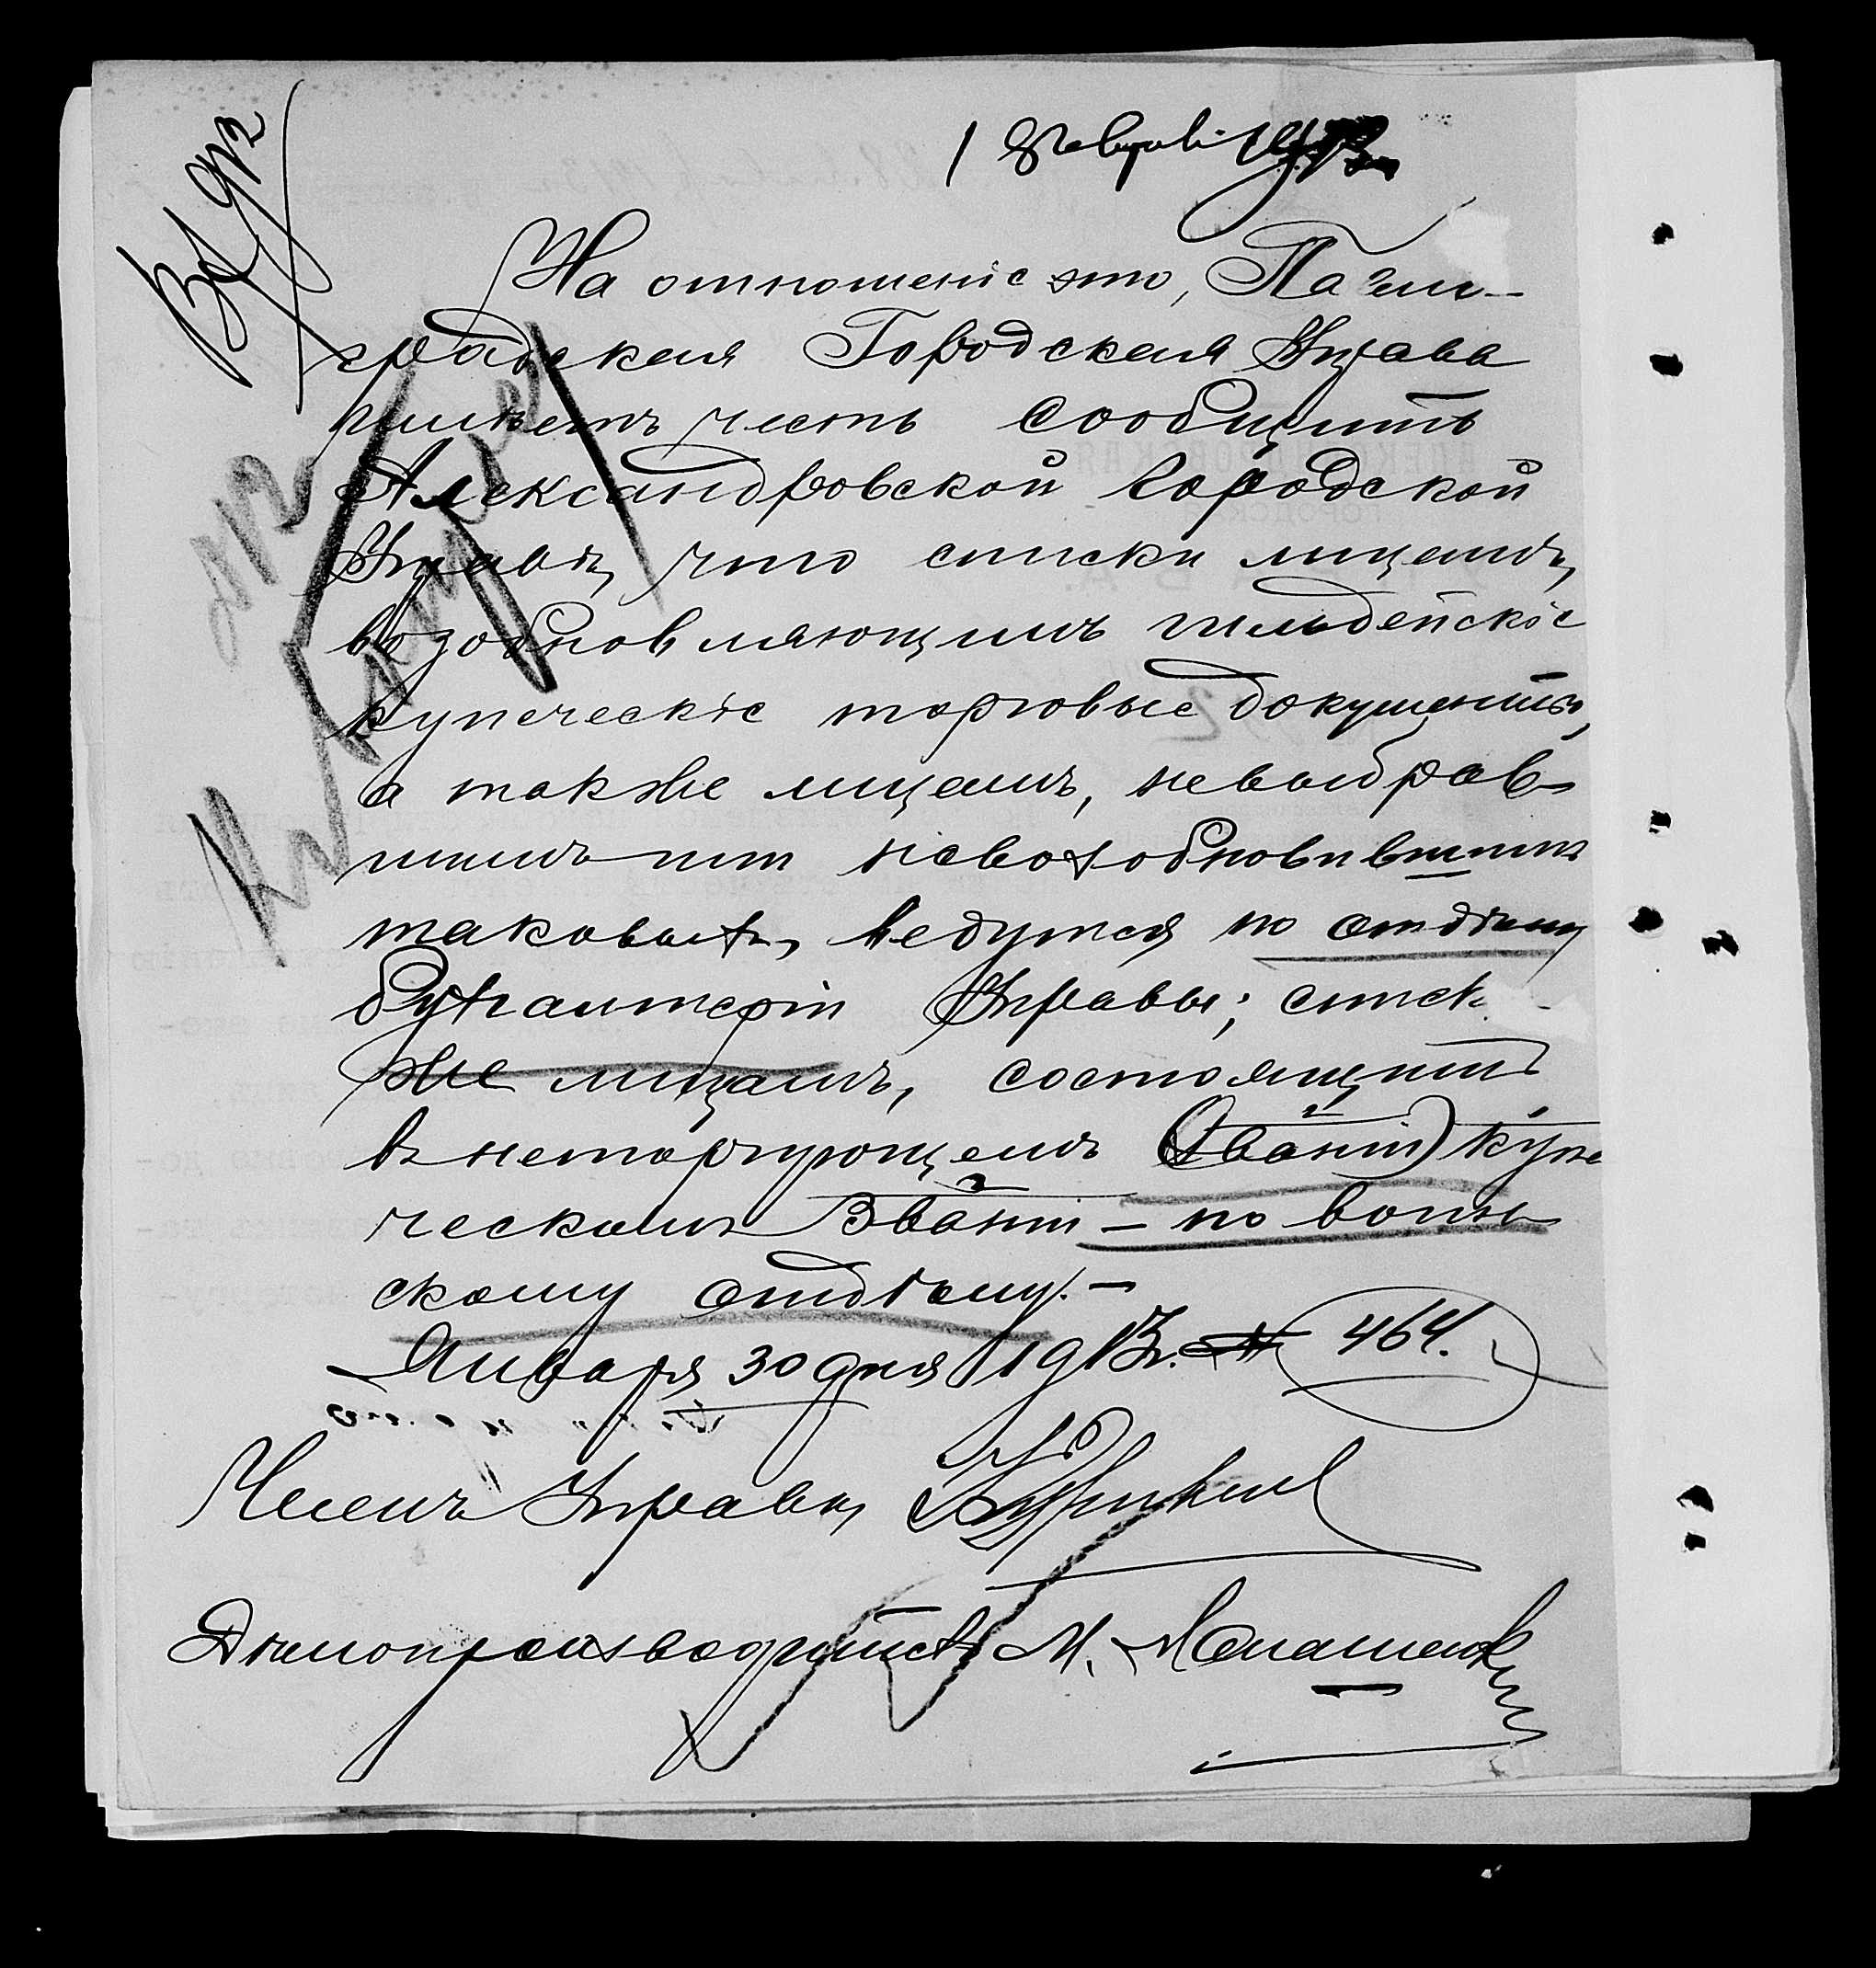 1 Февраля 1913
Вх 912
На отношение это, Павло-
градская Городская Управа
имѣетъ честь сообщить
Александровской Городской
Управѣ, что списки лицамъ,
возобновляющимъ гильдейскіе
купеческіе торговые документы,
а также лицамъ, невыбрав-
шимъ или невозобновившимъ
таковыхъ, ведутся по отдѣлу
бухгалтеріи Управы; списк
же лицамъ, состоящимъ
въ неторгующемъ (званіи) купе
ческомъ званіи – по воин
скому отдѣлу. –
Января 30 дня 1913 г. № 464.
Членъ Управы
Дѣлопроизводитель М.